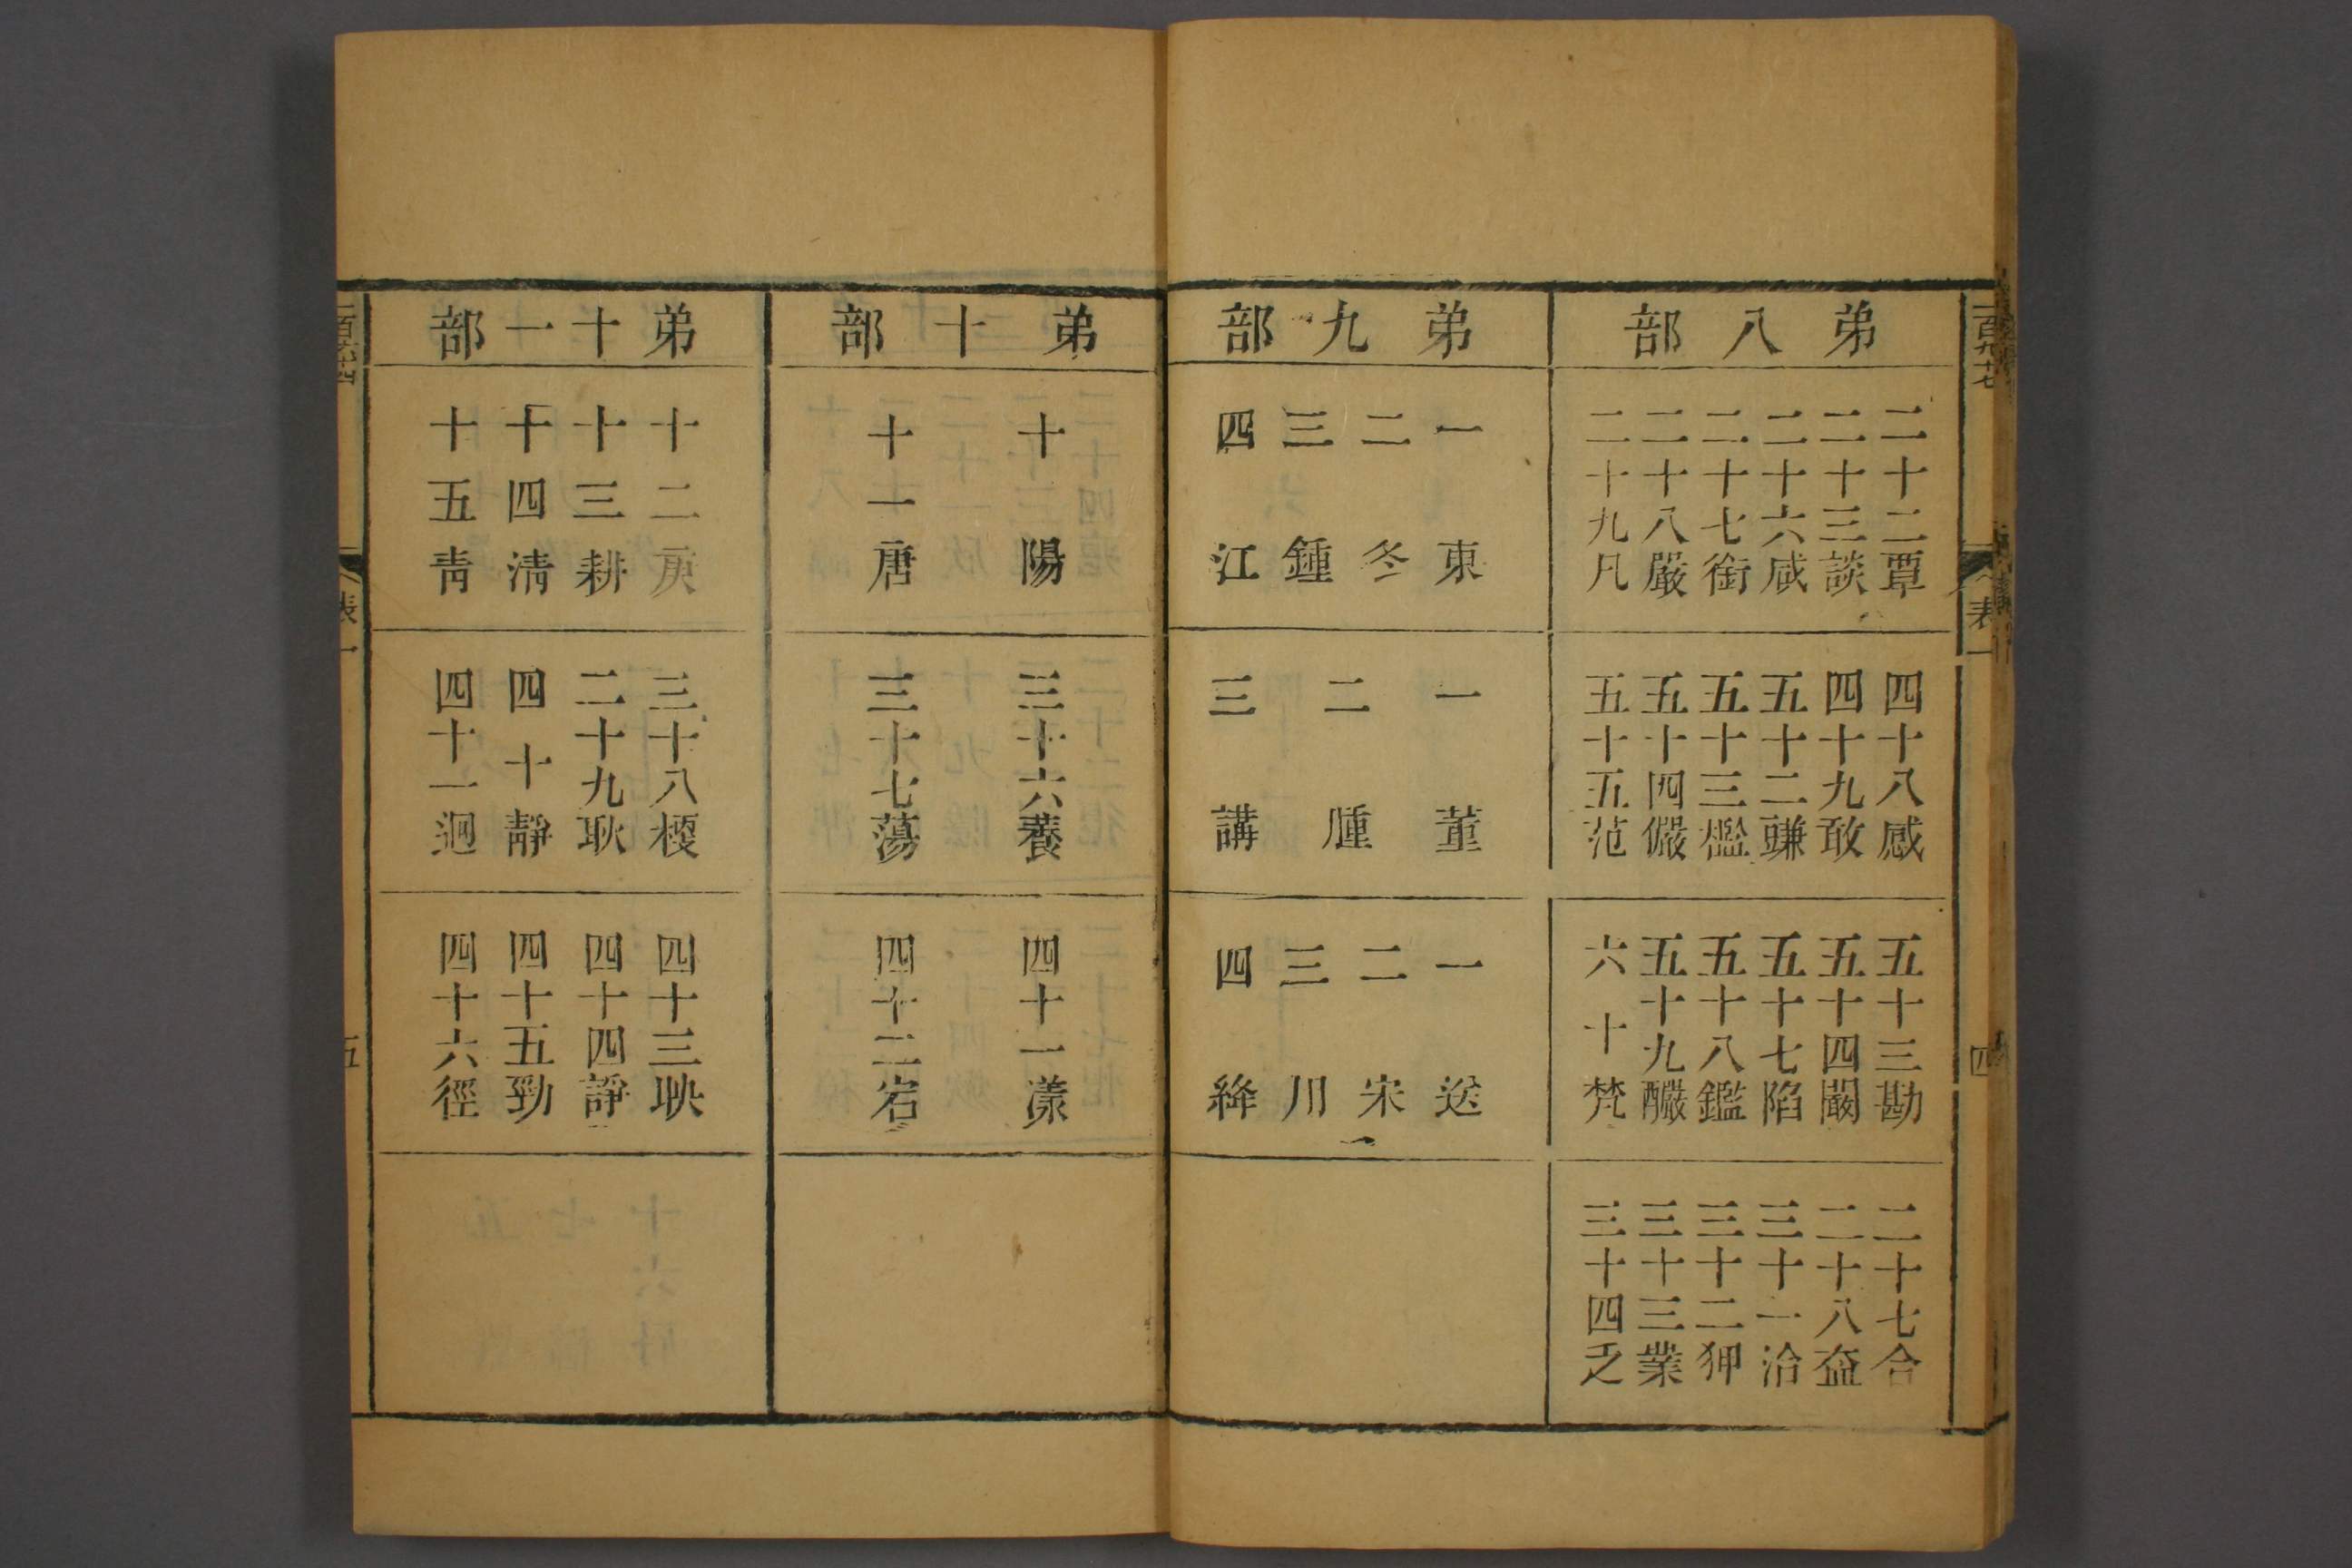 弟八部
二十二覃
二十三談
二十六咸
二十七銜
二十八嚴
二十九凡
四十八感
四十九敢
五十二豏
五十三檻
五十四儼
五十五范
五十三勘
五十四闞
五十七陷
五十八鑑
五十九釅
六十梵
二十七合
二十八盍
三十一洽
三十二狎
三十三業
三十四乏
弟九部
一東
二冬
三鍾
四江
一董
二腫
三講
一送
二宋
三用
四絳
弟十部
十陽
十一唐
三十六養
三十七蕩
四十一漾
四十二宕
弟十一部
十二庚
十三耕
十四清
十五青
三十八梗
二十九耿
四十靜
四十一迥
四十三映
四十四諍
四十五勁
四十六徑
表一
四
表一
五